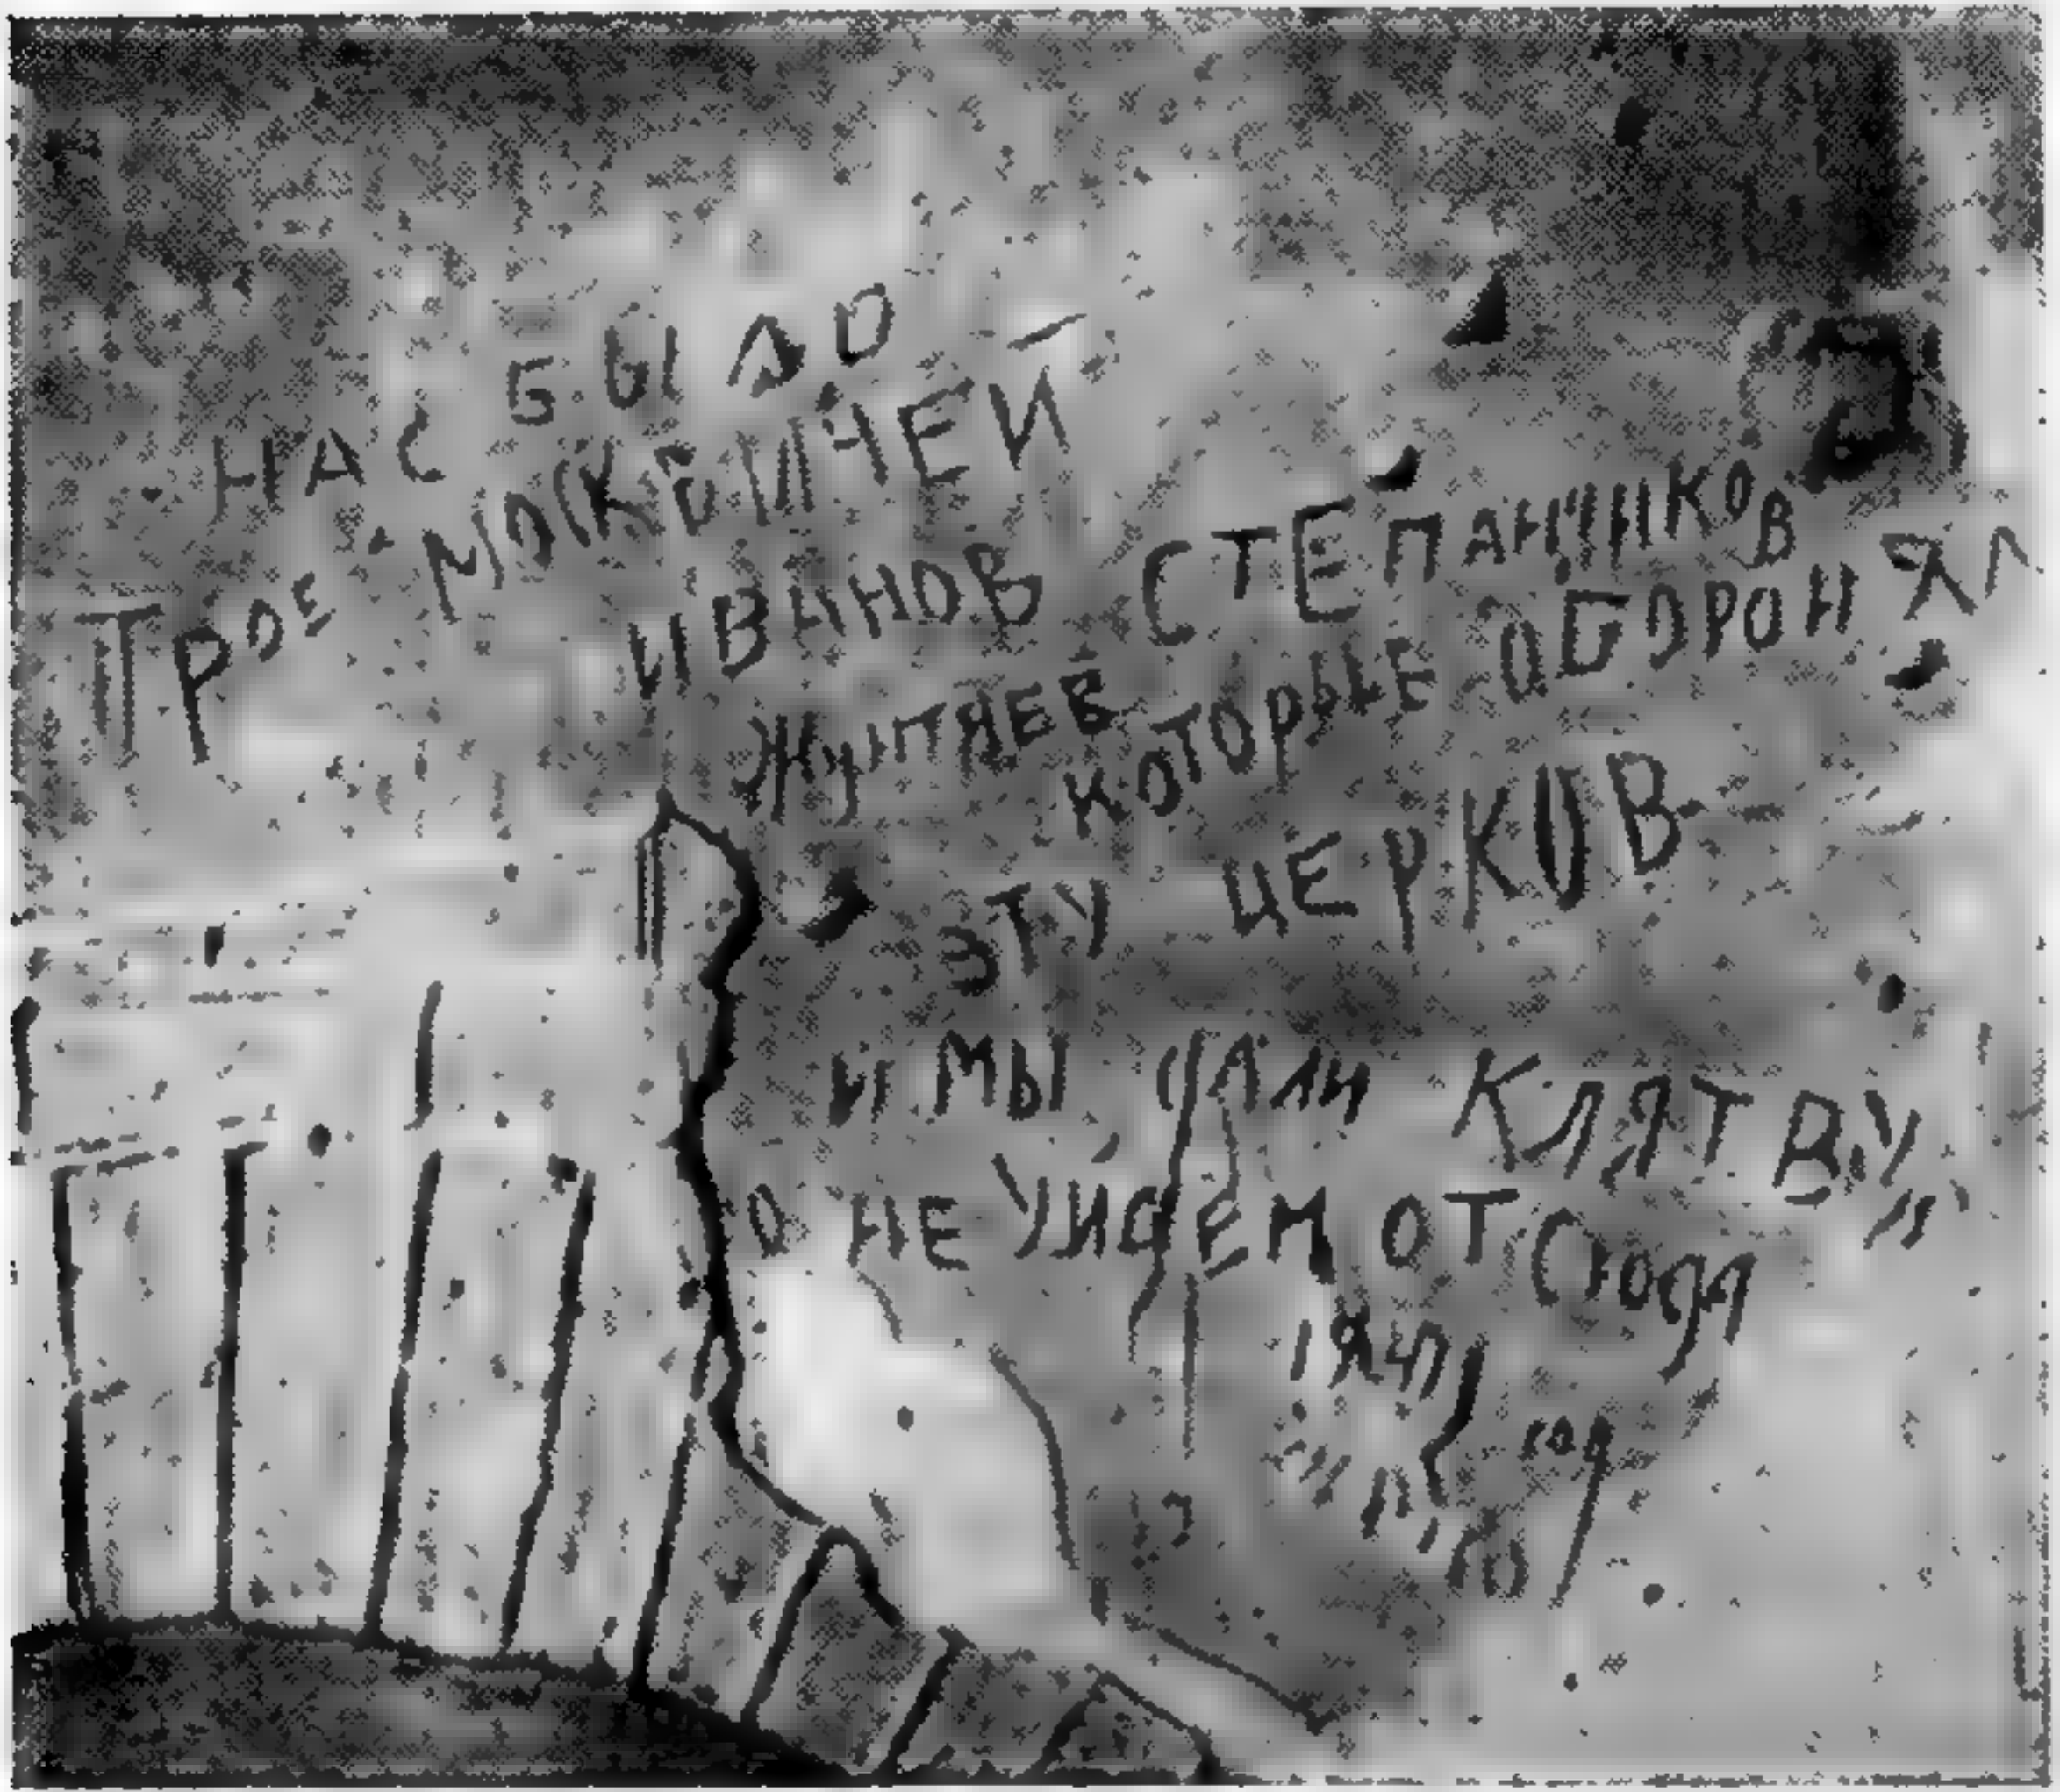 НАС БЫЛО
ТРОЕ МОСКВИЧЕЙ
ИВАНОВ СТЕПАНЧИКОВ
ЖУНТЯЕВ
КОТОРЫЕ ОБОРОНЯЛ
ЭТУ ЦЕРКОВ
И МЫ ДАЛИ КЛЯТВУ
НЕ УЙДЕМ ОТСЮДА
год